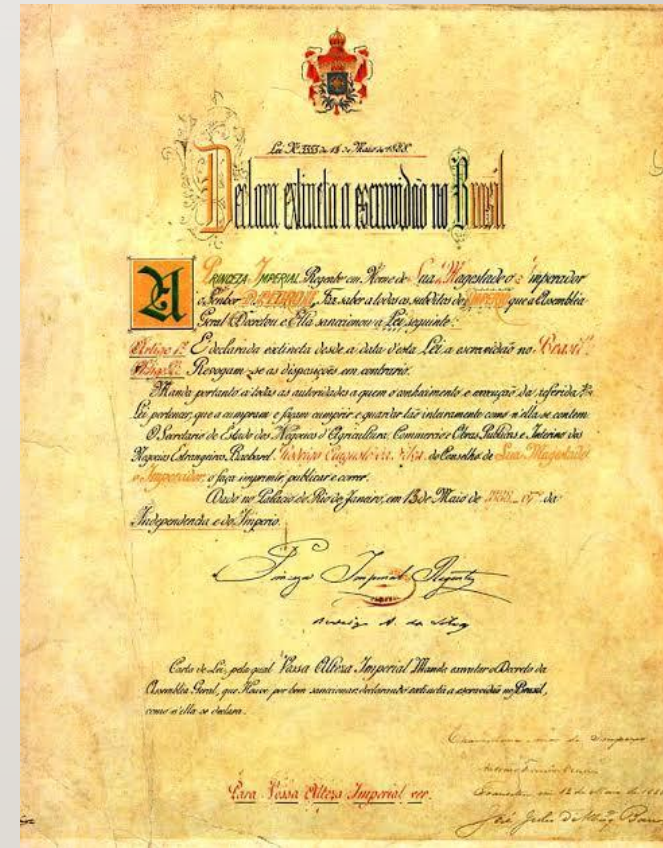 Lei Nº 3353 de 13 de Maio de 1888.
Declara extincta a escravidão no Brasil
A PRINCEZA IMPERIAL Regente em Nome de Sua Magestade o Imperador
o Senhor D. PEDRO II, Faz saber a todos os subditos do IMPERIO que a Assembléa
Geral Decretou e Ella sanccionou a Lei seguinte:
Artigo 1º É declarada extincta desde a data d'esta Lei a escravidão no Brasil.
Artigo 2º Revogam-se as disposições em contrario.
Manda portanto a todas as autoridades a quem o conhecimento e execução da referida
Lei pertencer, que a cumpram e façam cumprir e guardar tão inteiramente como n'ella se contem.
O Secretario de Estado dos Negocios d'Agricultura, Commercio e Obras Publicas e Interino dos
Negocios Estrangeiros, Bacharel Rodrigo Augusto da Silva, do Conselho de Sua Magestade
o Imperador, o faça imprimir, publicar e correr.
Dado no Palacio do Rio de Janeiro, em 13 de Maio de 1888, 67º da
Independencia e do Imperio.
Princeza Imperial Regente
Rodrigo A. da Silva
Carta de Lei, pela qual Vossa Alteza Imperial Manda executar o Decreto da
Assembléa Geral, que Houve por bem sanccionar, declarando extincta a escravidão no Brasil,
como n'ella se declara.
Para Vossa Alteza Imperial ver.
Chancellaria-mór do Imperio
Antonio Ferreira Vianna
Transitou em 13 de Maio de 1888
José Julio de Albuq. Barros